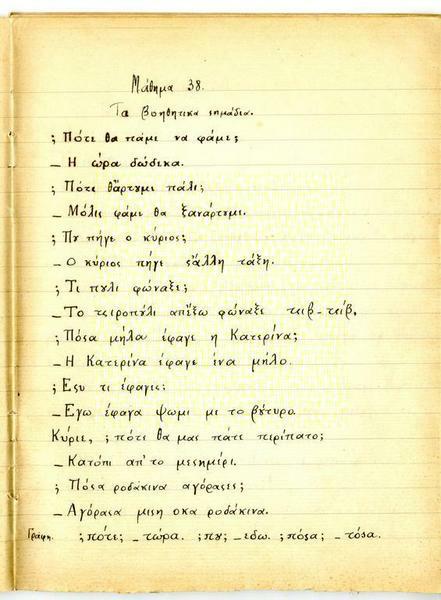 Μάθημα 38.
Τα βοηθητικα σημάδια.
; Πότε θα πάμε να φάμε;
– Η ώρα δώδικα.
; Πότε θἄρτȣμε πάλι;
– Μόλις φάμε θα ξανάρτȣμι.
; Πȣ πήγε ο κύριος;
– Ο κύριος πήγε ςἄλλη τάξη.
; Τι πȣλι φώναξε;
– Το τσιροπȣ́λι απἔξω φώναξε τσιβ-τσίβ.
; Πόςα μήλα έφαγε η Κατερίνα;
– Η Κατερίνα έφαγε ένα μήλο.
; Εςυ τι έφαγες;
– Εγω έφαγα ψωμι με το βȣ́τυρο.
Κύριε, ; πότε θα μας πάτε περίπατο;
– Κατόπι απ' το μεςημέρι.
; Πόςα ροδάκινα αγόραςες;
– Αγόραςα μιςη οκα ροδάκινα.
Γράφη. ; πότε; – τώρα. ; πȣ; – εδω. ; πόςα; – τόςα.